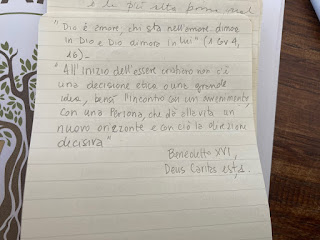 è le più alte
" Dio è amore, chi sta nell'amore dimora
in Dio e Dio dimora in lui" (1 Gv 4,
16).
" All'inizio dell'essere cristiano non c'è
una decisione etica o una grande
idea, bensì l'incontro con un avvenimento,
con una Persona, che dà alla vita un
nuovo orizzonte e con ciò la direzione
decisiva"
Benedetto XVI,
Deus Caritas est, 1.